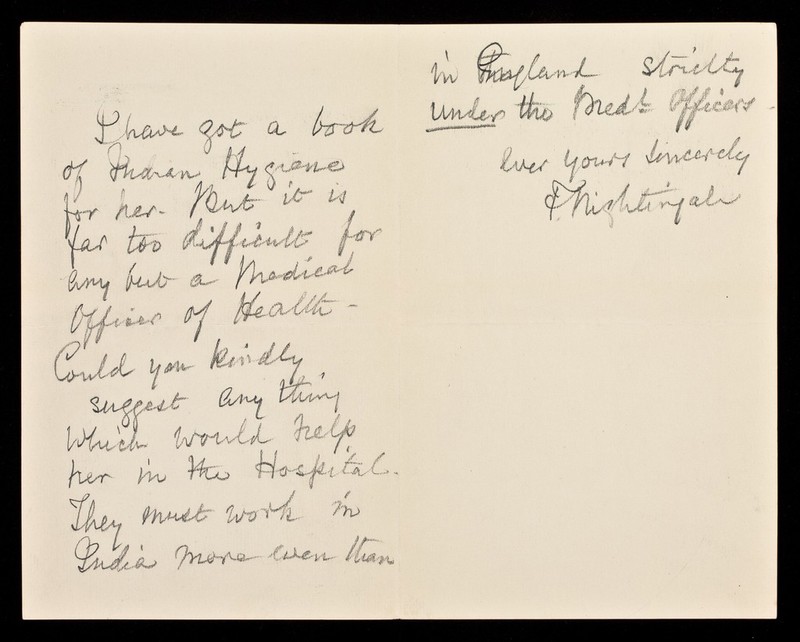 I have got a book
of Indian Hygiene
for her. But it is
far too difficult for
any but a Medical
Officer of Health –
Could you kindly
suggest any thing
which would help
her in the Hospital.
They must work in
India more even than
in England strictly
under the Medl. Officers.
ever yours sincerely
F. Nightingale